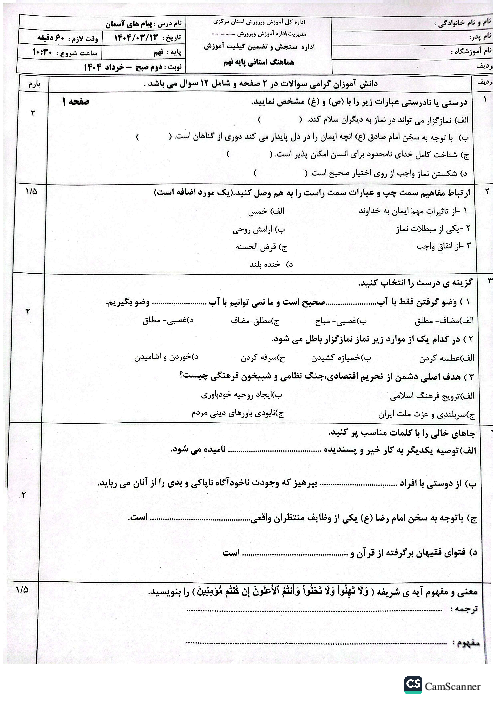 نام و نام خانوادگی:
نام پدر:
نام آموزشگاه:
ردیف
اداره کل آموزش وپرورش استان مرکزی
مدیریت/اداره آموزش وپرورش
اداره سنجش و تضمین کیفیت آموزش
هماهنگ استانی پایه نهم
نام درس: پیام های آسمان
تاریخ: ۱۴۰۴/۰۳/۱۳
وقت لازم: ۶۰ دقیقه
پایه: نهم
ساعت شروع: ۱۰:۳۰
نوبت: دوم صبح - خرداد ۱۴۰۴
ردیف
دانش آموزان گرامی سوالات در ۲ صفحه و شامل ۱۲ سوال می باشد.
بارم
درستی یا نادرستی عبارات زیر را با (ص) و (غ) مشخص نمایید.
صفحه ۱
۲
الف) نمازگزار می تواند در نماز به دیگران سلام کند. ( )
ب) با توجه به سخن امام صادق (ع) آنچه ایمان را در دل پایدار می کند دوری از گناهان است. ( )
ج) شناخت کامل خدای نامحدود برای انسان امکان پذیر است. ( )
د) شکستن نماز واجب از روی اختیار صحیح است ( )
۲
ارتباط مفاهیم سمت چپ و عبارات سمت راست را به هم وصل کنید.(یک مورد اضافه است)
۱/۵
۱ -از تاثیرات مهم ایمان به خداوند
الف) خمس
۲ -یکی از مبطلات نماز
ب) آرامش روحی
۳ -از انفاق واجب
ج) قرض الحسنه
د) خنده بلند
۳
گزینه ی درست را انتخاب کنید.
۲
۱ ) وضو گرفتن فقط با آب......................صحیح است و ما نمی توانیم با آب ...................... وضو بگیریم.
الف)مضاف- مطلق
ب)غصبی- مباح
ج)مطلق مضاف
د)غصبی- مطلق
۲ ) در کدام یک از موارد زیر نماز نمازگزار باطل می شود.
الف)عطسه کردن
ب)خمیازه کشیدن
ج)سرفه کردن
د)خوردن و آشامیدن
۳ ) هدف اصلی دشمن از تحریم اقتصادی،جنگ نظامی و شبیخون فرهنگی چیست؟
الف)ترویج فرهنگ اسلامی
ب)ایجاد روحیه خودباوری
ج)سربلندی و عزت ملت ایران
ج)نابودی باورهای دینی مردم
جاهای خالی را با کلمات مناسب پر کنید.
الف)توصیه یکدیگر به کار خیر و پسندیده .............................. نامیده می شود.
ب) از دوستی با افراد ...................... بپرهیز که وجودت ناخودآگاه ناپاکی و بدی را از آنان می رباید.
۲
ج) باتوجه به سخن امام رضا (ع) یکی از وظایف منتظران واقعی........................ است.
د) فتوای فقیهان برگرفته از قرآن و ........................ است
معنی و مفهوم آیه ی شریفه ( وَلَا تَهِنُوا وَلَا تَحْزَنُوا وَأَنْتُمُ الْأَعْلَوْنَ إِنْ كُنْتُمْ مُؤْمِنِينَ ) را بنویسید.
۱/۵
ترجمه :
مفهوم :
CS CamScanner